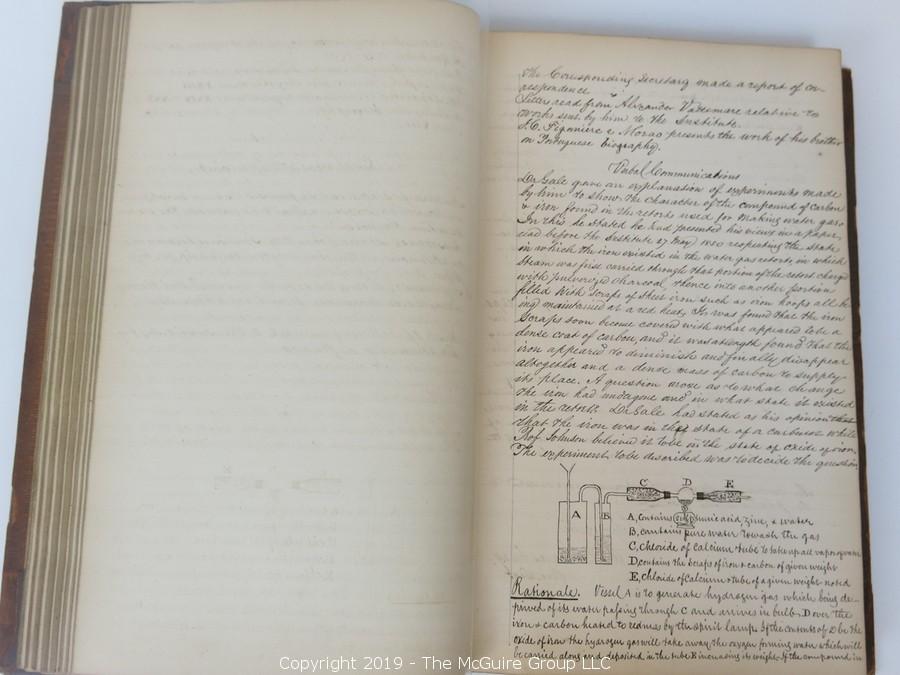 The Corresponding Secretary made a report of cor-
respondence.
Letters read from Alexander Vattemare relative to
works sent by him to the Institute.
J.C. Figaniere e Morao presents the work of his brother
on Portuguese biography.
Verbal Communications
Dr Gale gave an explanation of experiments made
by him to show the character of the compound of carbon
& iron found in the retorts used for making water gas.
In this he stated he had presented his views in a paper
read before the Institute 27 May respecting the state
in which the iron existed in the water gas retorts, in which
steam was first carried through that portion of the retort charged
with pulverized charcoal, thence into another portion
filled with scraps of sheet iron such as iron hoops all be-
ing maintained at a red heat. It was found that the iron
scraps soon become covered with what appeared to be a
dense coat of carbon, and it was at length found that the
iron appeared to diminish and finally disappear
altogether and a dense mass of carbon to supply
its place. A question arose as to what change
the iron had undergone and in what state it existed
in the retort. Dr Gale had stated as his opinion that
that the iron was in the state of a carburet while
Prof. Johnson believed it to be in the state of oxide of iron.
The experiment to be described was to decide the question
A B C D E
A, contains sulphuric acid, zinc, & water
B, contains pure water to wash the gas
C, chloride of calcium tube to take up all vapor of water
D, contains the scraps of iron & carbon of given weight
E, chloride of calcium tube of a given weight noted
Rationale. Vessel A is to generate hydrogen gas which being de-
prived of its water passing through C and arrives in bulb D over the
iron & carbon heated to redness by the spirit lamp. If the contents of D be the
oxide of iron the hydrogen gas will take away the oxygen forming water which will
be carried along and deposited in the tube E increasing its weight. If the compound in
Copyright 2019 - The McGuire Group LLC